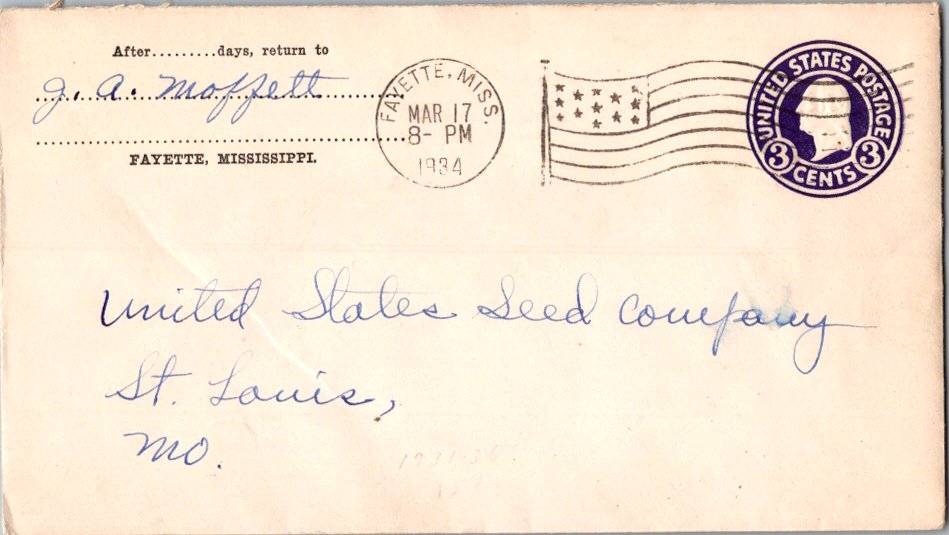 After.........days, return to
J. A. Moffett
FAYETTE, MISSISSIPPI.
FAYETTE, MISS.
MAR 17
8- PM
1934
UNITED STATES POSTAGE
3 CENTS 3
United States Seed Company
St. Louis,
Mo.